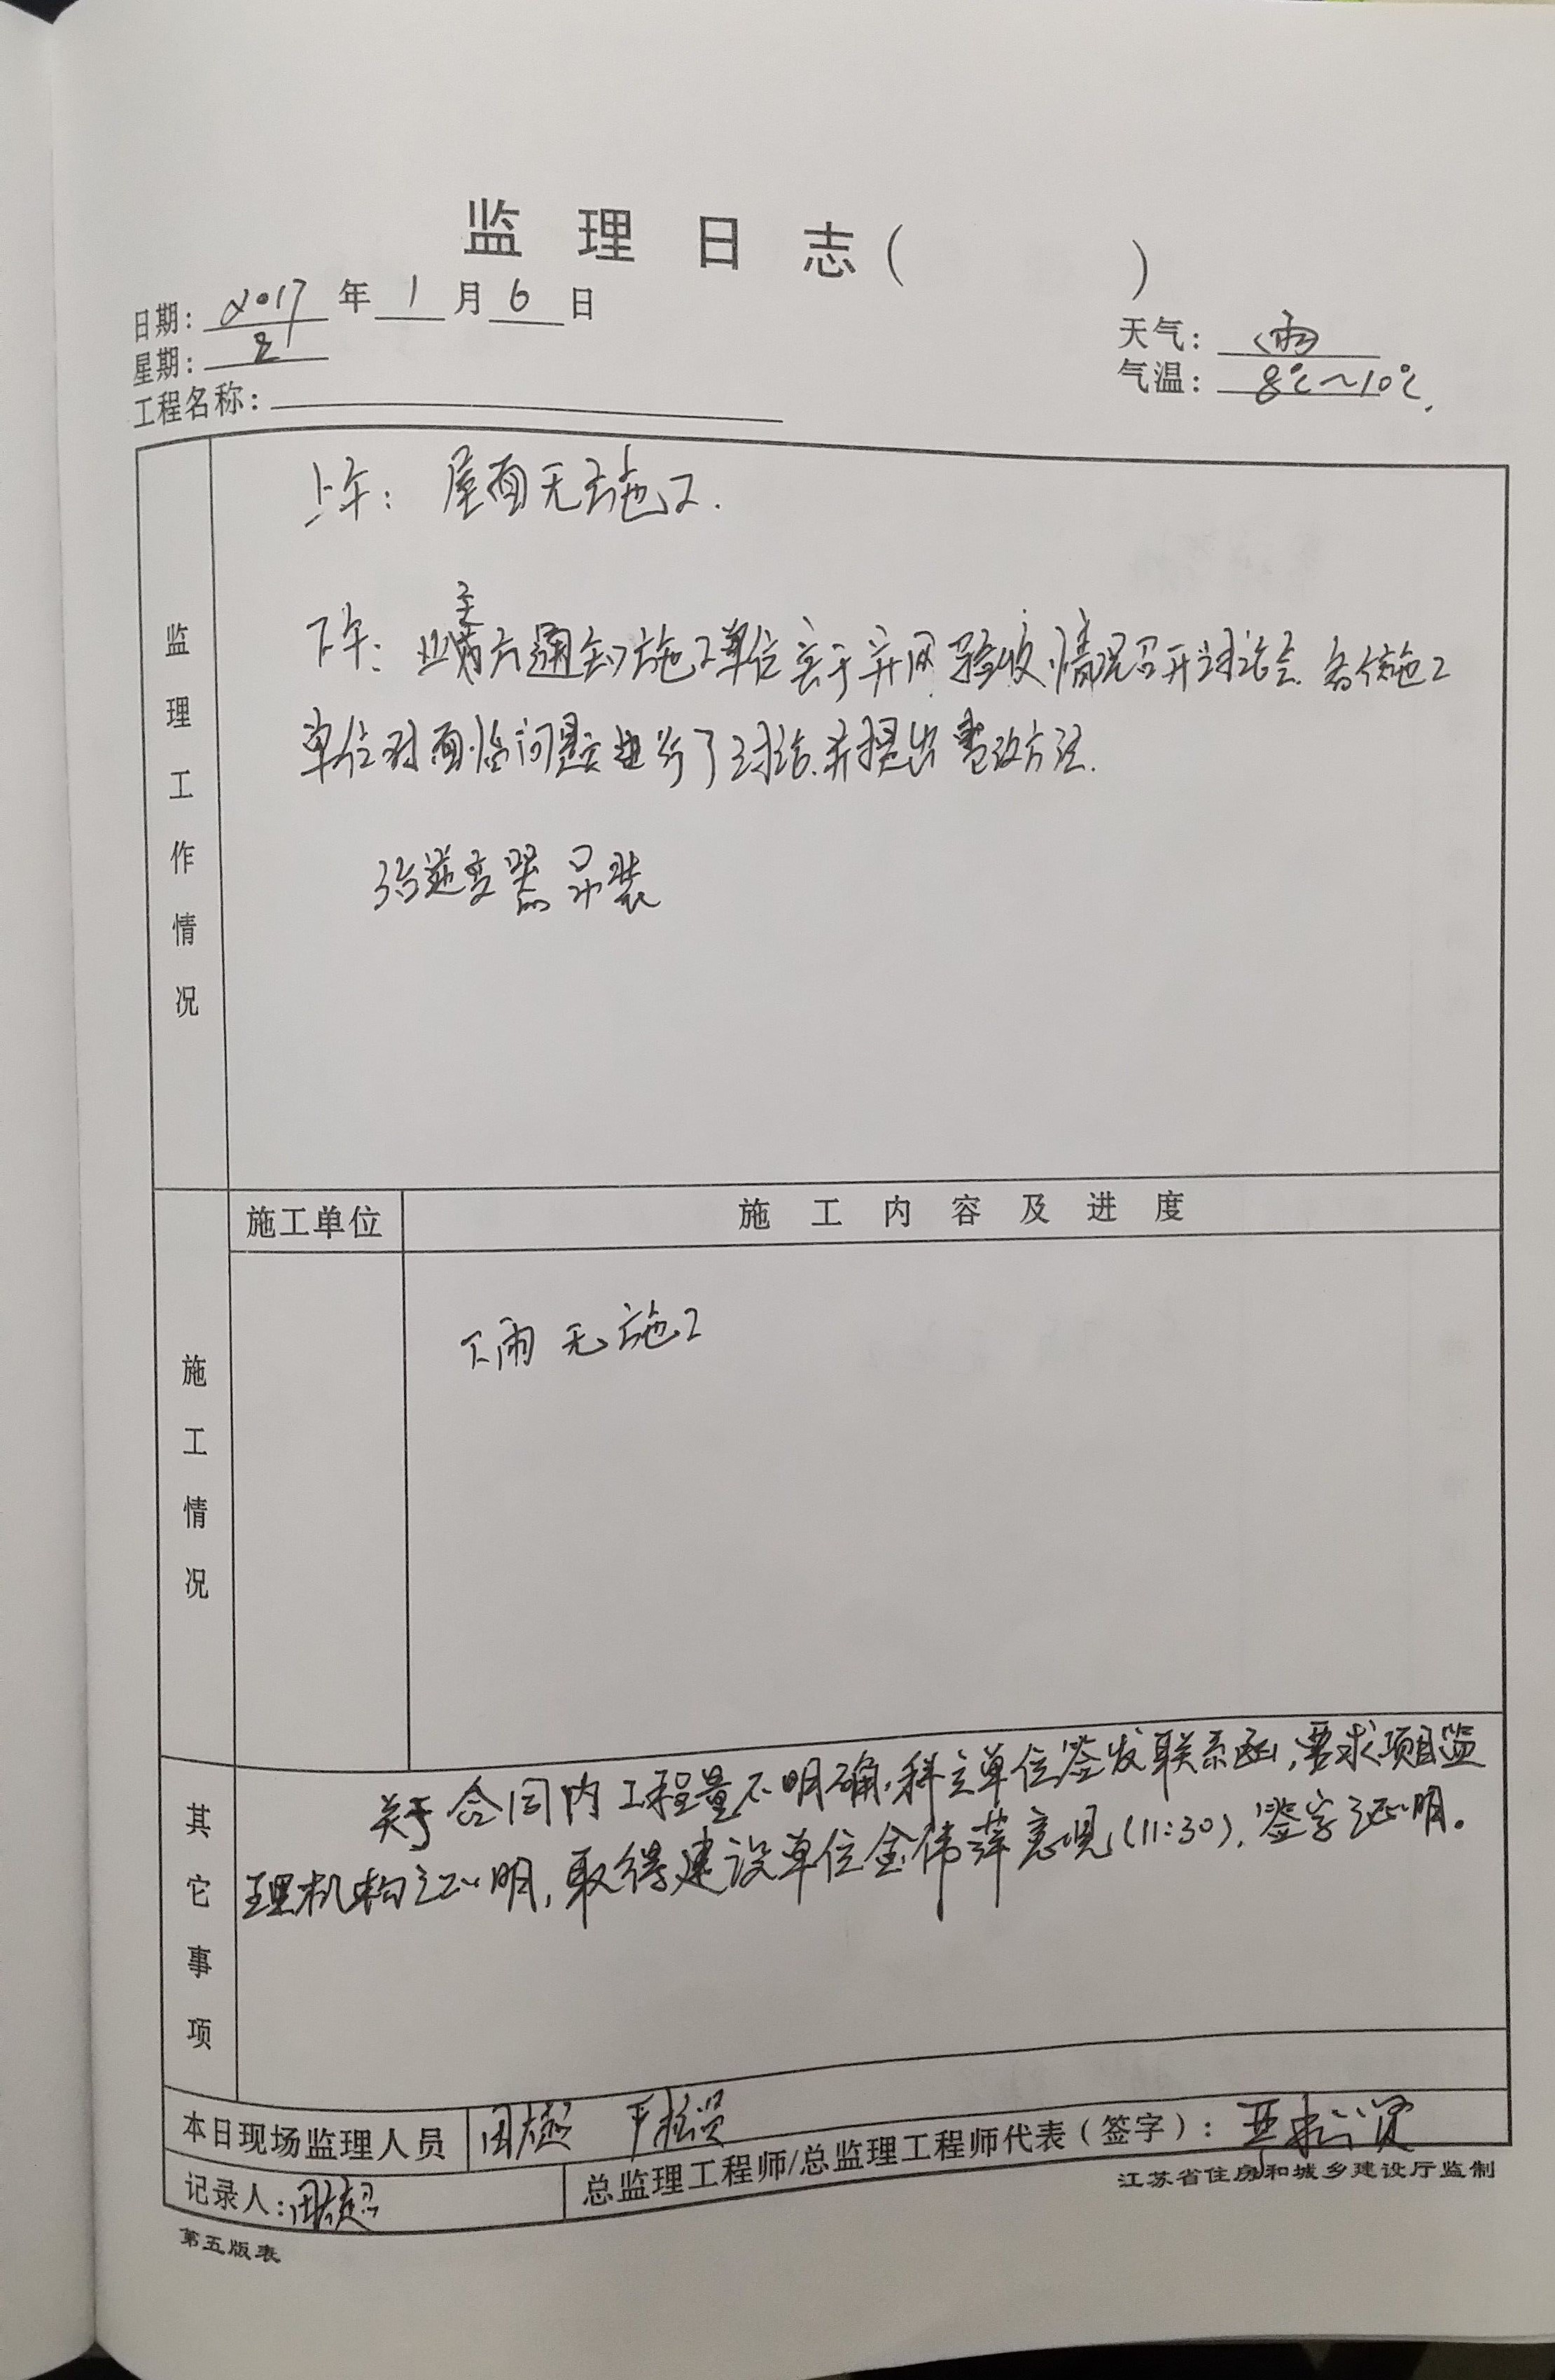 监理日志(    )
日期: 2017 年 1 月 6 日
星期:
天气: 雨
气温: 8℃~10℃
工程名称:
监理工作情况
上午: 屋面无施工.
下午: 业主方通知施工单位关于并网验收情况召开讨论会. 各个施工
单位对面临问题进行了讨论.并提出整改方法.
逆变器吊装
施工单位
施工内容及进度
施工情况
下雨 无施工
其它事项
关于合同内工程量不明确,科立单位签发联系函,要求项目监
理机构证明,取得建设单位金伟萍意见(11:30).签字证明。
本日现场监理人员
记录人:
总监理工程师/总监理工程师代表(签字):
江苏省住房和城乡建设厅监制
第五版表